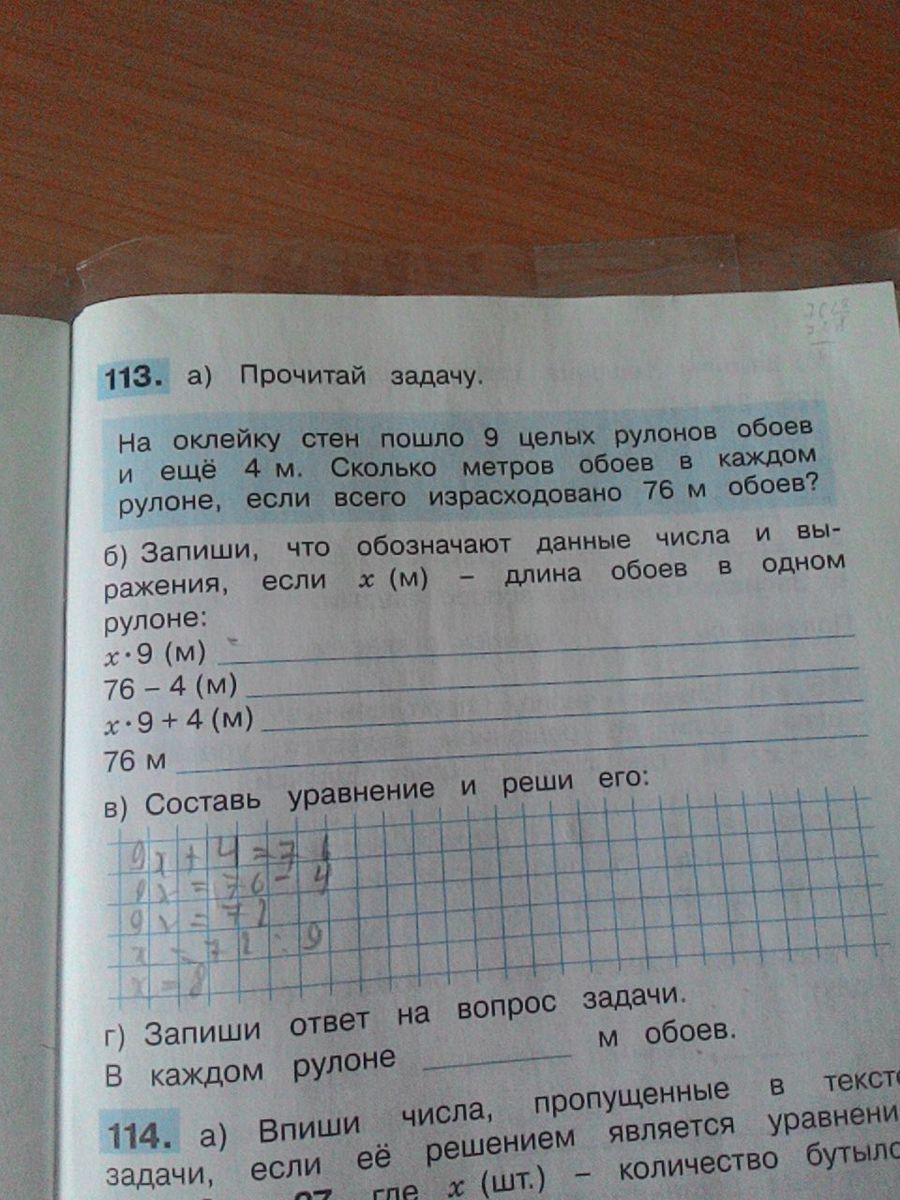 113. а) Прочитай задачу.
На оклейку стен пошло 9 целых рулонов обоев
и ещё 4 м. Сколько метров обоев в каждом
рулоне, если всего израсходовано 76 м обоев?
б) Запиши, что обозначают данные числа и вы-
ражения, если x (м) – длина обоев в одном
рулоне:
x·9 (м)
76 – 4 (м)
x·9 + 4 (м)
76 м
в) Составь уравнение и реши его:
9x + 4 = 76
9x = 76 - 4
9x = 72
x = 72 : 9
x = 8
г) Запиши ответ на вопрос задачи.
В каждом рулоне м обоев.
114. а) Впиши числа, пропущенные в тексте
задачи, если её решением является уравнени
97, где x (шт.) – количество бутыло